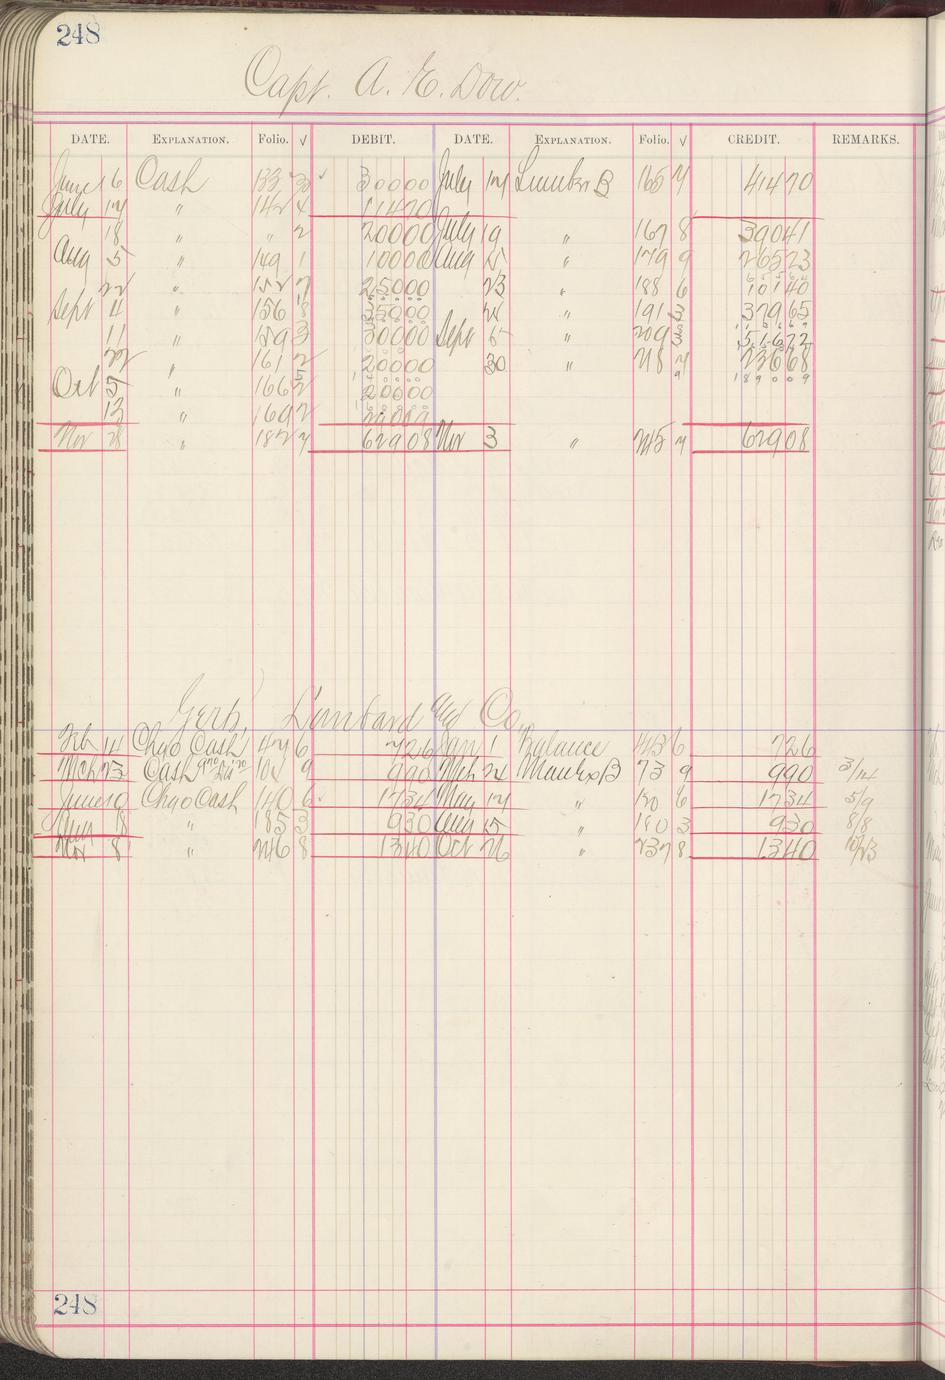 248
Capt. A. E. Dow.
DATE. EXPLANATION. Folio. √ DEBIT. DATE. EXPLANATION. Folio. √ CREDIT. REMARKS.
June 16 Cash 133 3 30000 July 14 Lumber B 165 7 41470
July 14 " 142 4 11470
18 " " 2 20000 July 19 " 167 8 39041
Aug 5 " 149 1 10000 Aug 5 " 179 9 26523
22 " 152 7 25000 23 " 188 6 10140
Sept 4 " 156 8 35000 " 191 37965
11 " 159 3 30000 Sept 5 " 209 51672
22 " 161 2 20000 30 " 218 7 23668
Oct 5 " 166 2 20000 189009
13 " 169 2
Nov 28 " 182 7 62908 Nov 3 " 245 7 62908
Gerb, Lombard and Co.
Feb 14 Chgo Cash 47 6 726 Jan 1 Balance 436 726
Mch 23 Cash 104 9 990 Mch 24 Manf Exp B 73 9 990 3/14
June 10 Chgo Cash 140 6 1734 May 14 " 120 6 1734 5/9
Aug 18 " 185 3 930 Aug 15 " 180 3 930 8/8
Nov 8 " 246 8 1340 Oct 26 " 237 8 1340 10/23
248